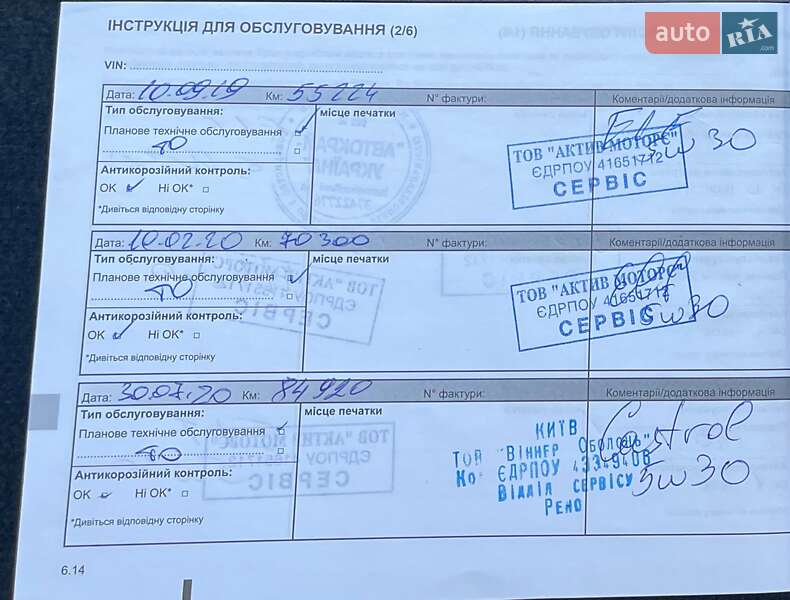 ІНСТРУКЦІЯ ДЛЯ ОБСЛУГОВУВАННЯ (2/6)
auto RIA .com
VIN:
Дата: 10.09.19 Км: 55224 N° фактури: Коментарі/додаткова інформація
Тип обслуговування: місце печатки
Планове технічне обслуговування
ТО
ТОВ "АКТИВ МОТОРС"
ЄДРПОУ 41651712
СЕРВІС
5w30
Антикорозійний контроль:
OK Ні OK*
*Дивіться відповідну сторінку
Дата: 10.02.20 Км: 70300 N° фактури: Коментарі/додаткова інформація
Тип обслуговування: місце печатки
Планове технічне обслуговування
ТО
ТОВ "АКТИВ МОТОРС"
ЄДРПОУ 41651712
СЕРВІС
5w30
Антикорозійний контроль:
OK Ні OK*
*Дивіться відповідну сторінку
Дата: 30.07.20 Км: 84920 N° фактури: Коментарі/додаткова інформація
Тип обслуговування: місце печатки
Планове технічне обслуговування
ТО
КИЇВ
"ВІННЕР Оболонь"
ЄДРПОУ
ВІДДІЛ СЕРВІСУ
РЕНО
Castrol
5w30
Антикорозійний контроль:
OK Ні OK*
*Дивіться відповідну сторінку
6.14